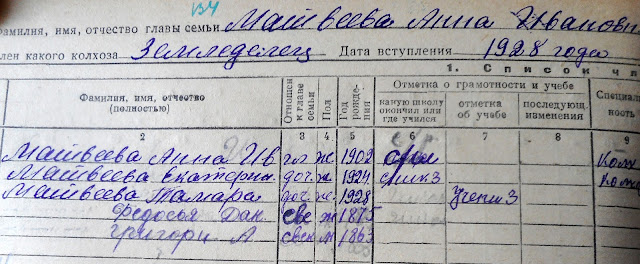 134
Фамилия, имя, отчество главы семьи Матвеева Анна Ивановн
лен какого колхоза Земледелец Дата вступления 1928 года
1. Список чл
Фамилия, имя, отчество (полностью) Отношен. к главе семьи Пол Год рождения Отметка о грамотности и учебе Специальность
какую школу окончил или где учился отметка об учебе последующ. изменения
2 3 4 5 6 7 8 9
Матвеева Анна Ив гл ж 1902 Колх
Матвеева Екатерин. доч. ж 1924 Колх
Матвеева Тамара доч. ж. 1928 Учени 3
Федосья Дан. све ж 1875
Григори А свек м 1863